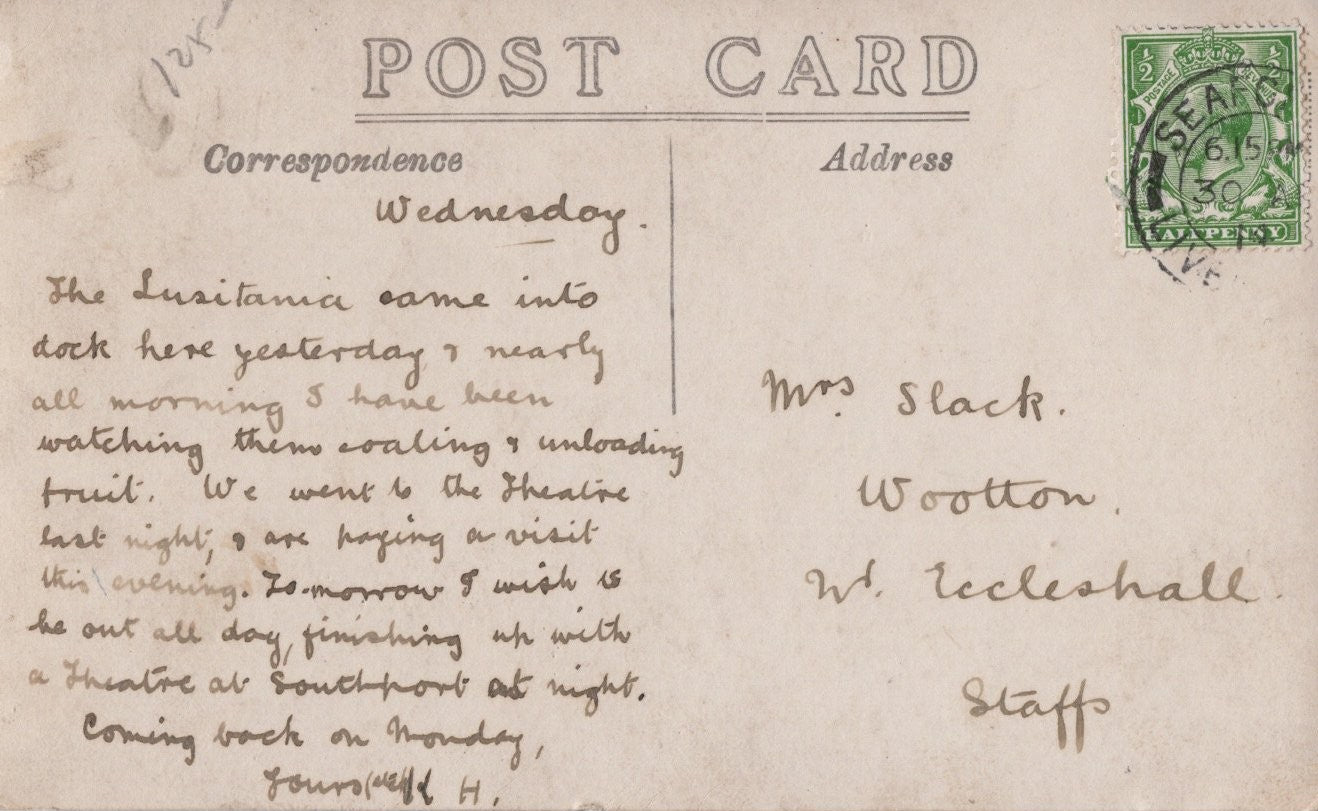 6/125
POST CARD
Correspondence
Address
½ ½
POSTAGE REVENUE
HALFPENNY
SEAFO
6.15
30
LIVE
Wednesday.
The Lusitania came into
dock here yesterday & nearly
all morning I have been
watching them coaling & unloading
fruit. We went to the Theatre
last night, & are paying a visit
this evening. To-morrow I wish to
be out all day, finishing up with
a Theatre at Southport at night.
Coming back on Monday,
Yours H.
Mrs. Slack.
Wootton,
Nr. Eccleshall.
Staffs